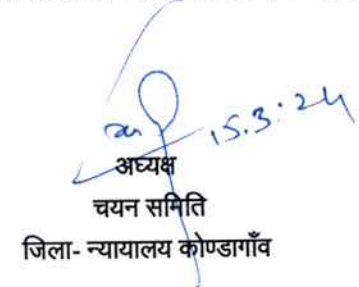 15.3.24
अध्यक्ष
चयन समिति
जिला- न्यायालय कोण्डागाँव